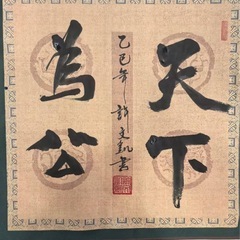 天下
為公
乙巳年 許文凱書